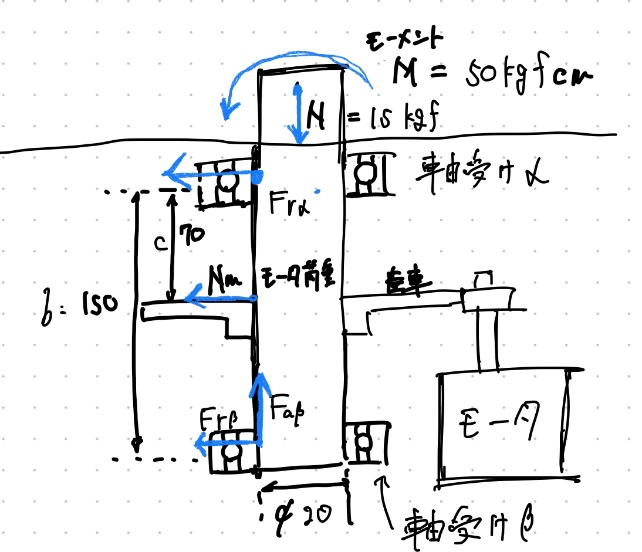 モーメント
M = 50kgfcm
N = 15 kgf
軸受けα
Frα
c 70
Nm
モータ荷重
歯車
b: 150
Frβ
Faβ
モータ
φ20
軸受けβ